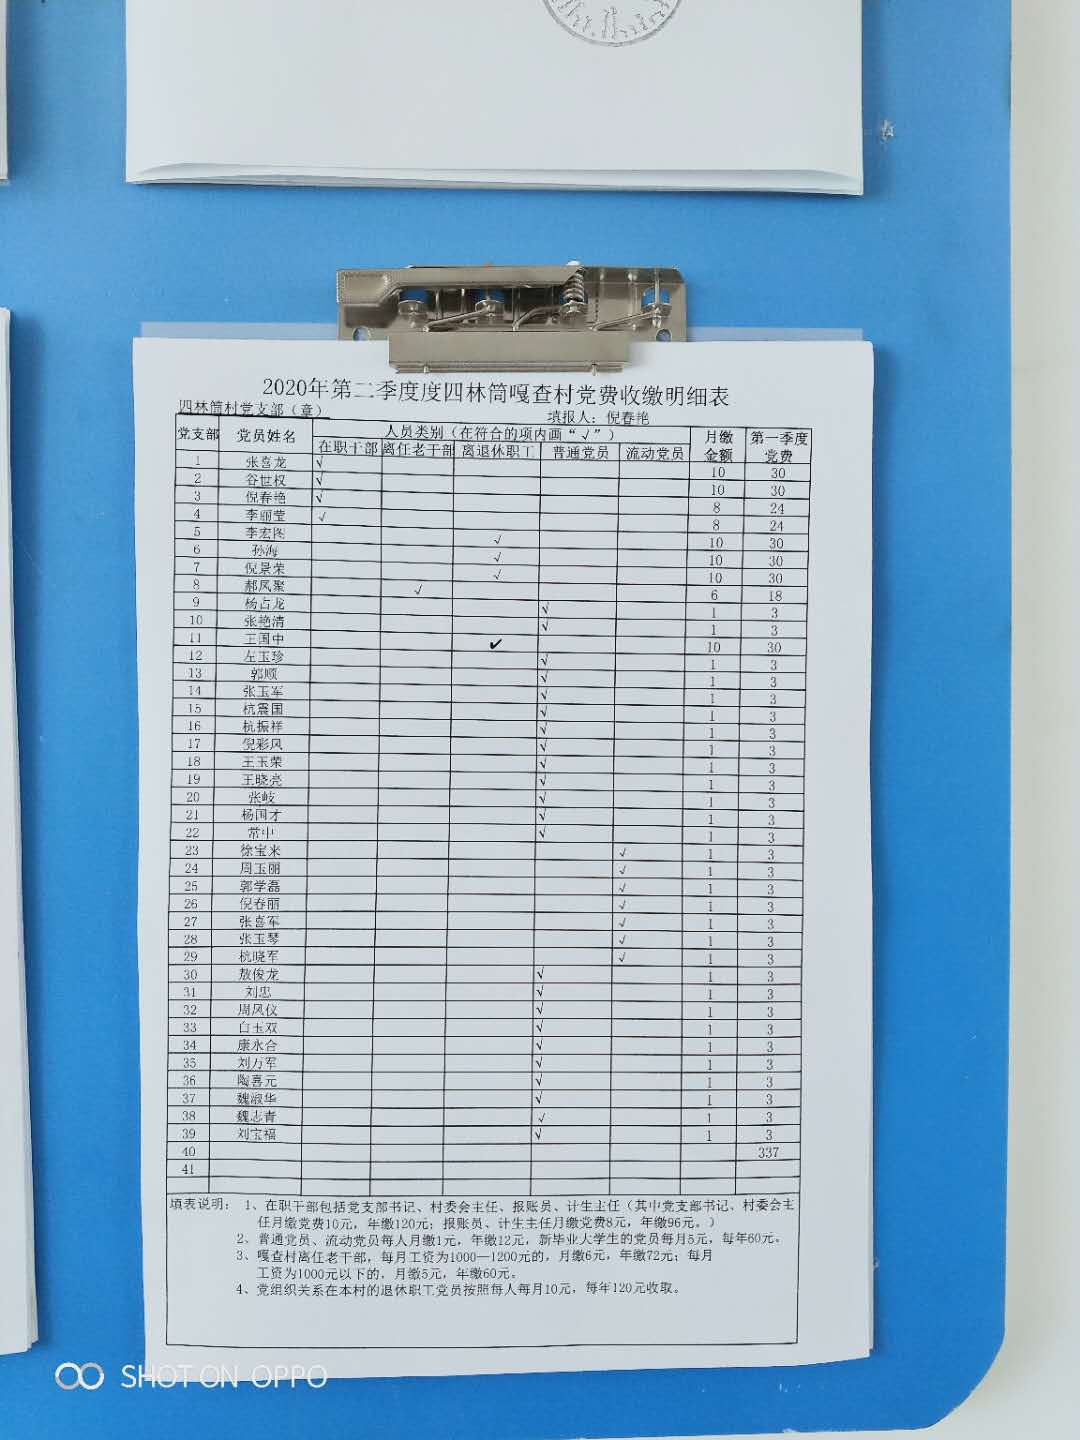 2020年第二季度度四林筒嘎查村党费收缴明细表
四林筒村党支部（章） 填报人：倪春艳
党支部 党员姓名 人员类别（在符合的项内画“√”） 月缴金额 第一季度党费
在职干部 离任老干部 离退休职工 普通党员 流动党员
1 张喜龙 √ 10 30
2 谷世权 √ 10 30
3 倪春艳 √ 8 24
4 李丽莹 √ 8 24
5 李宏图 √ 10 30
6 孙海 √ 10 30
7 倪景荣 √ 10 30
8 郝凤聚 √ 6 18
9 杨占龙 √ 1 3
10 张艳清 √ 1 3
11 王国中 ✔ 10 30
12 左玉珍 √ 1 3
13 郭顺 √ 1 3
14 张玉军 √ 1 3
15 杭震国 √ 1 3
16 杭振祥 √ 1 3
17 倪彩风 √ 1 3
18 王玉荣 √ 1 3
19 王晓亮 √ 1 3
20 张岐 √ 1 3
21 杨国才 √ 1 3
22 常中 √ 1 3
23 徐宝来 √ 1 3
24 周玉丽 √ 1 3
25 郭学磊 √ 1 3
26 倪春丽 √ 1 3
27 张喜军 √ 1 3
28 张玉琴 √ 1 3
29 杭晓军 √ 1 3
30 敖俊龙 √ 1 3
31 刘忠 √ 1 3
32 周凤仪 √ 1 3
33 白玉双 √ 1 3
34 康永合 √ 1 3
35 刘万军 √ 1 3
36 陶喜元 √ 1 3
37 魏淑华 √ 1 3
38 魏志青 √ 1 3
39 刘宝福 √ 1 3
40 337
41
填表说明： 1、在职干部包括党支部书记、村委会主任、报账员、计生主任（其中党支部书记、村委会主
任月缴党费10元，年缴120元；报账员、计生主任月缴党费8元，年缴96元。）
2、普通党员、流动党员每人月缴1元，年缴12元，新毕业大学生的党员每月5元，每年60元。
3、嘎查村离任老干部，每月工资为1000—1200元的，月缴6元，年缴72元；每月
工资为1000元以下的，月缴5元，年缴60元。
4、党组织关系在本村的退休职工党员按照每人每月10元，每年120元收取。
SHOT ON OPPO